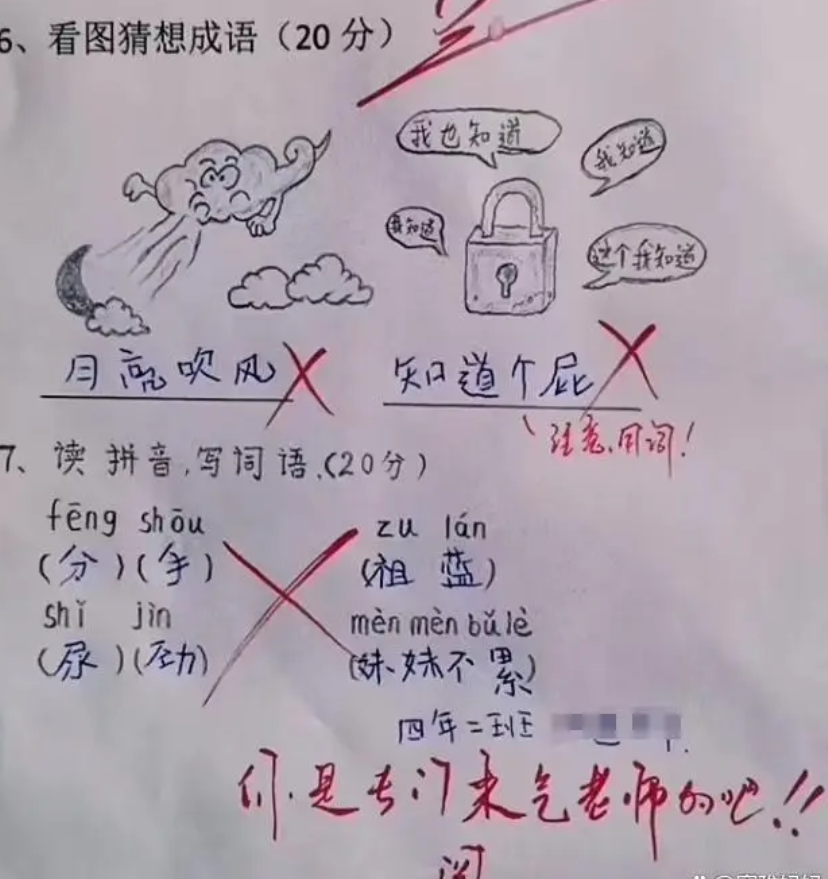 6、看图猜想成语（20分）
我也知道
我知道
我知道
这个我知道
月亮吹风
知道个屁
注意用词！
7、读拼音,写词语.(20分)
fēng shōu zu lán
(分)(手) (祖 蓝)
shǐ jìn mèn mèn bǔ lè
(尿)(劲) (妹妹不累)
四年二班
们是专门来气老师的吧!!